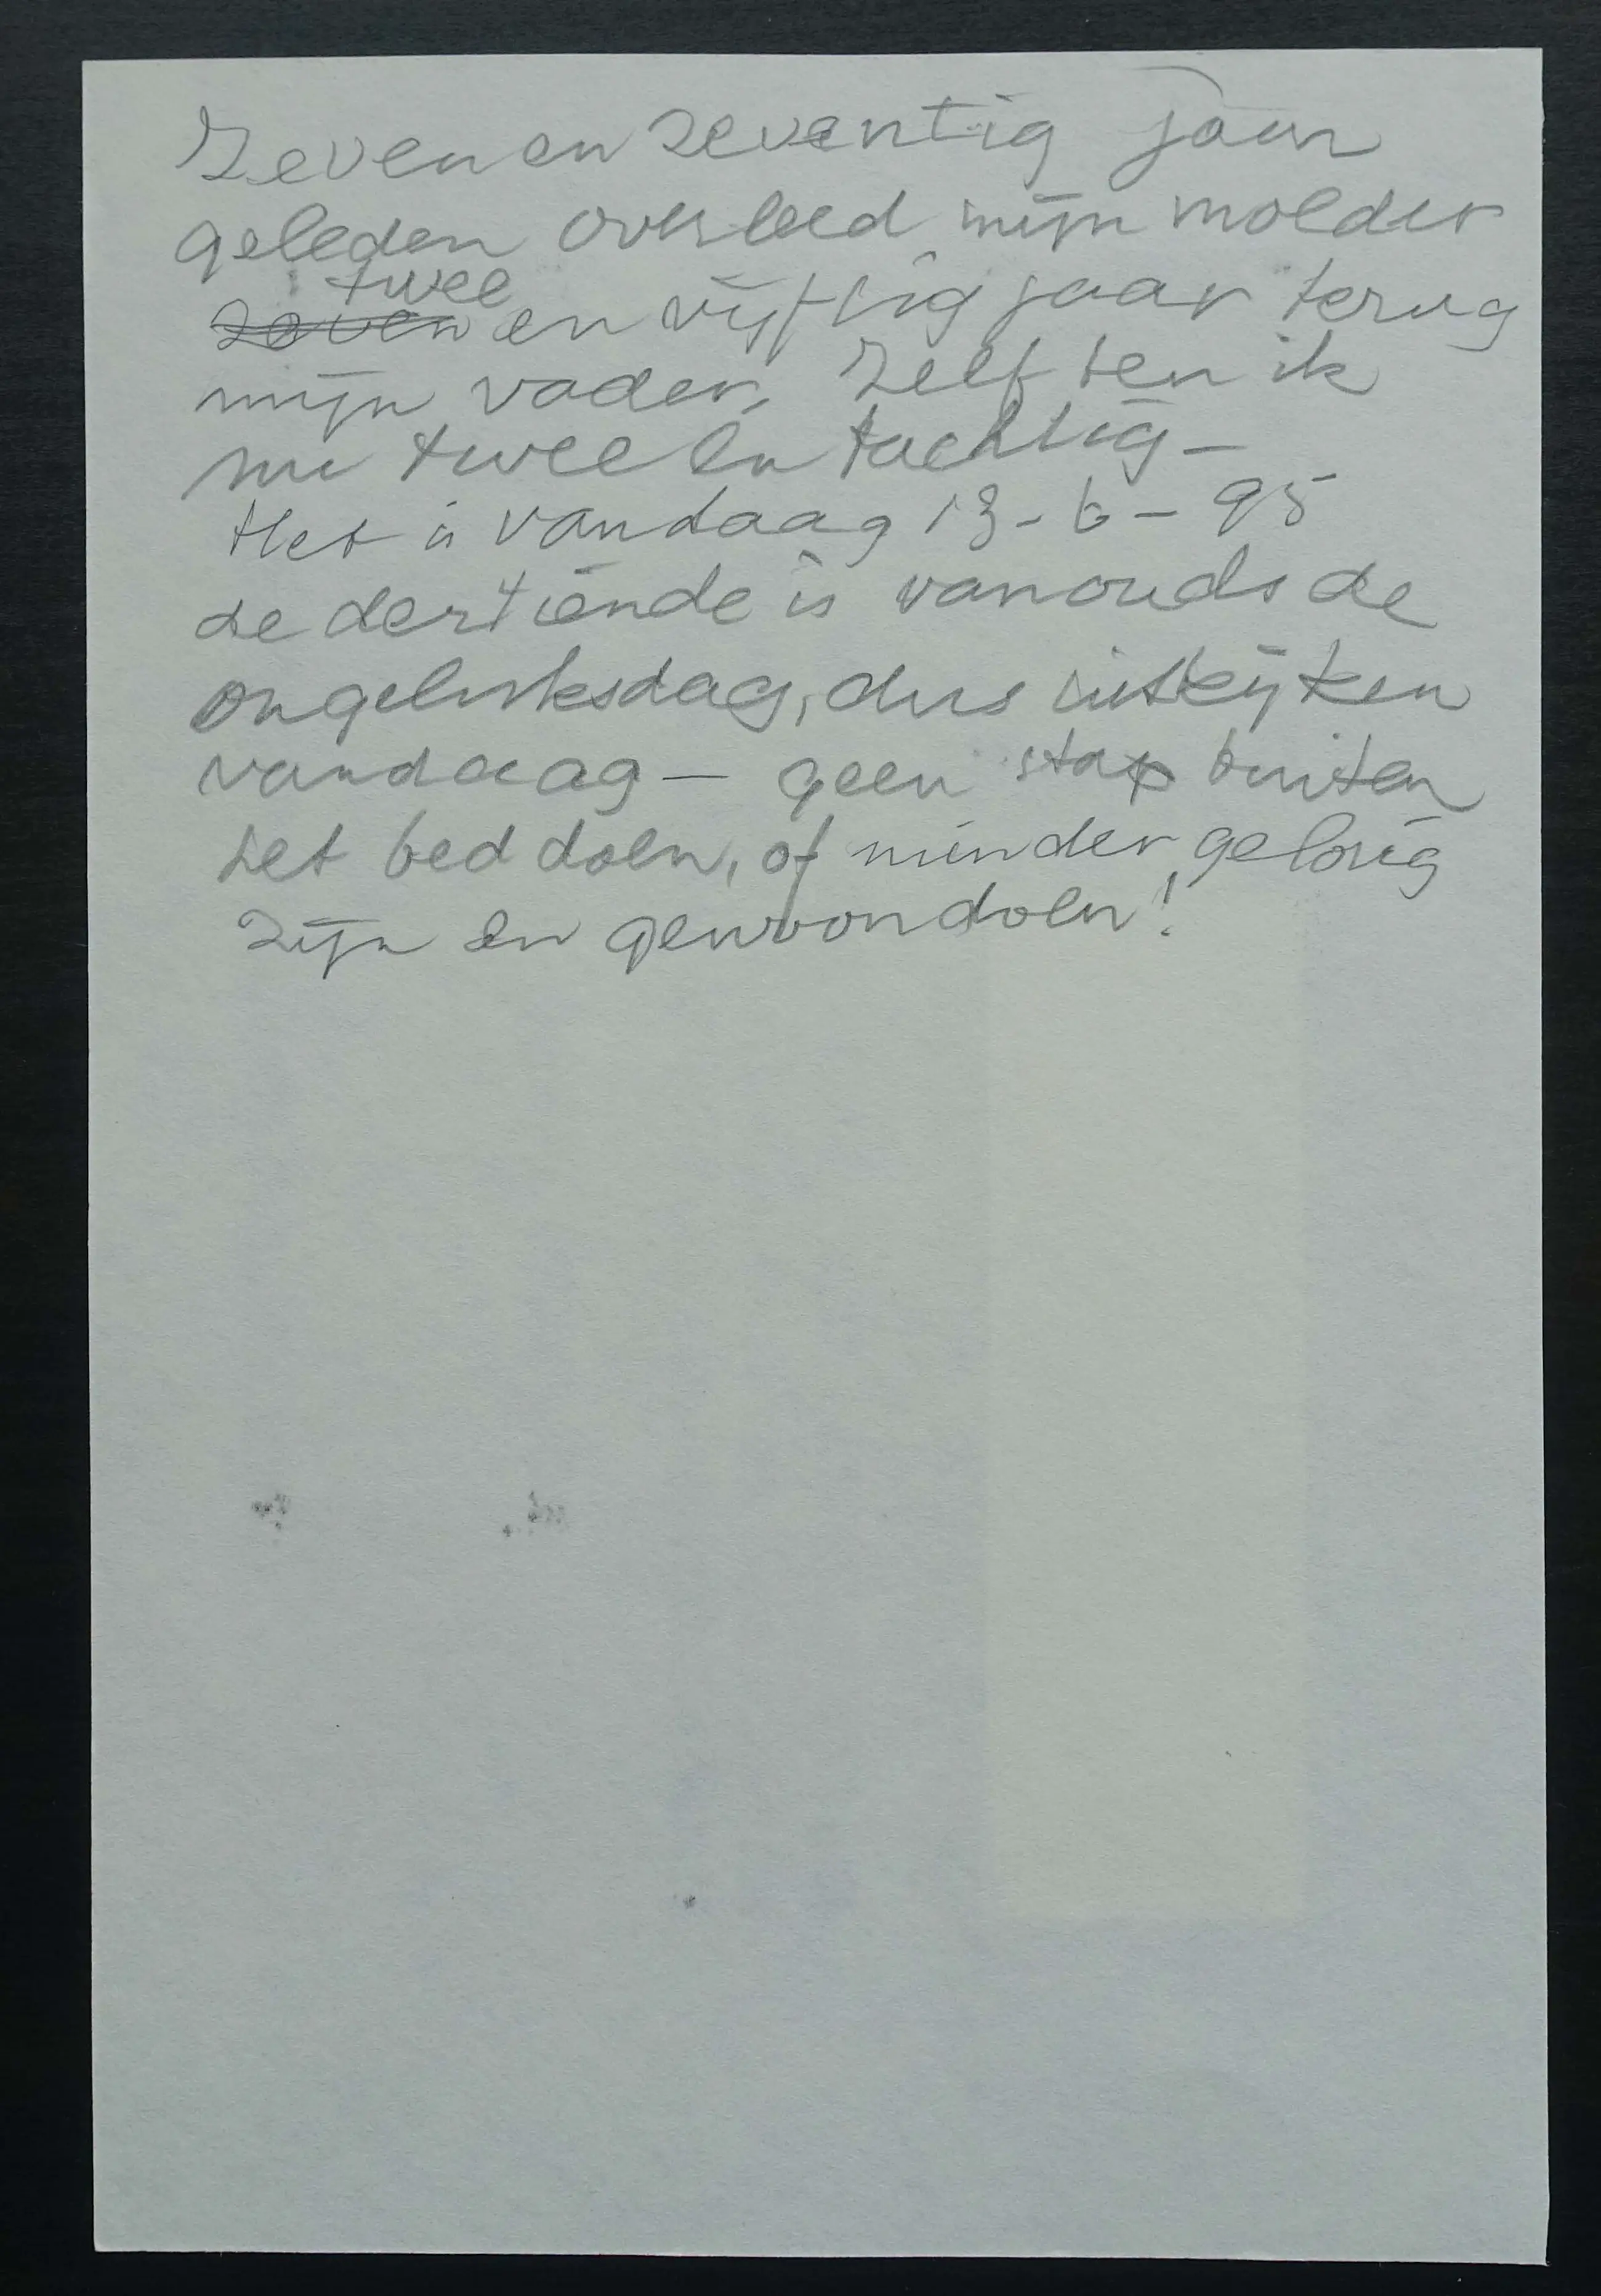 Zeven en zeventig jaar
geleden overleed mijn moeder
twee
zeven en vijftig jaar terug
mijn vader, Zelf ben ik
nu twee en tachtig -
Het is vandaag 13 - 6 - 95
de dertiende is vanouds de
ongeluksdag, dus uitkijken
vandaag — geen stap buiten
het bed doen, of minder gelovig
zijn en gewoon doen!